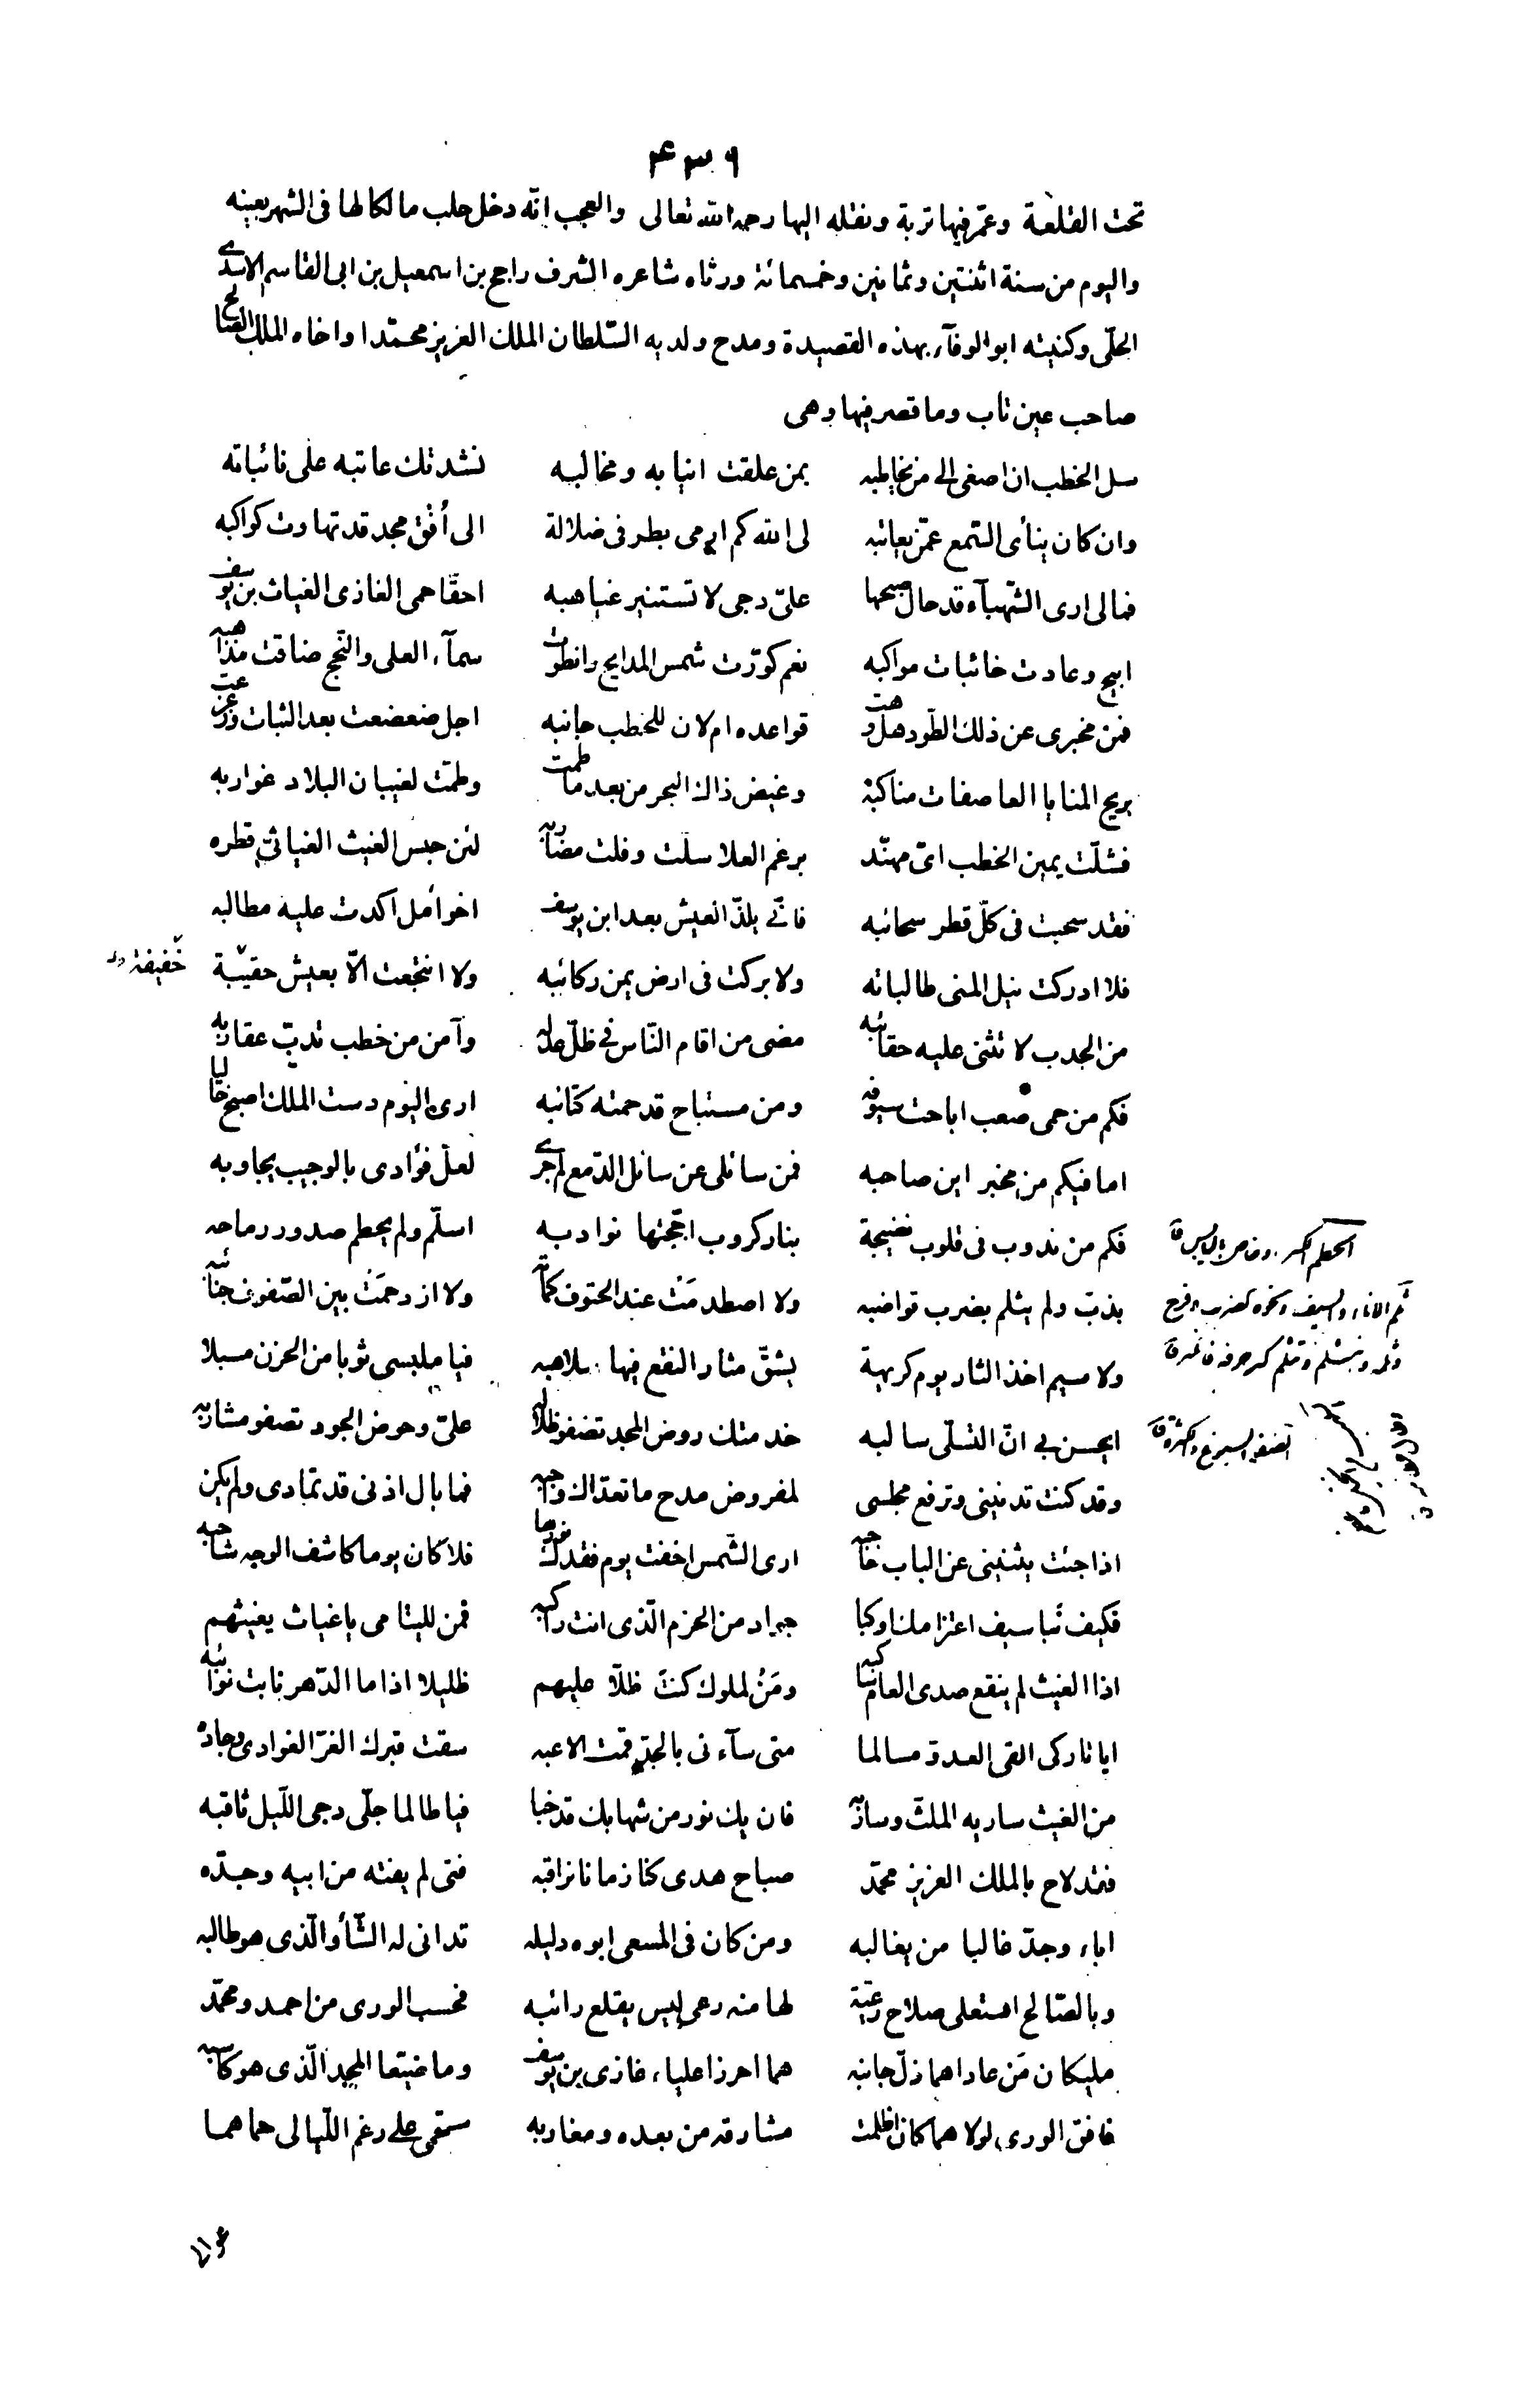 ۴۳۹
تحت القلعة وعمّر فيها تربة ونقله اليها رحمه الله تعالى والعجب انّه دخل حلب مالكا لها فى الشهر بعينه
واليوم من سنة اثنتين وثمانين وخمسمائة ورثاه شاعره الشرف راجح بن اسمعيل بن ابى القاسم الاسدي
الحلّى وكنيته ابو الوفآء بهذه القصيدة ومدح ولديه السّلطان الملك العزيز محمّدا واخاه الملك الصالح
صاحب عين تاب وما قصر فيها وهى
سل الخطب ان اصغى الى من يخاطبه بمن علقت انيابه ومخالبه نشدتك عاتبه على نائباته
وان كان ينأى السّمع عمّن يعاتبه لى الله كم ارمى بطرفى ضلالة الى أفق مجد قد تهاوت كواكبه
فمالى ارى الشّهبآء قد حال صبحها علىّ دجى لا تستنير غياهبه احقّا حمى الغازى الغياث بن يوسف
ابيح وعادت خائبات مواكبه نعم كوّرت شمس المدايح وانطوت سمآء العلى والنّجح ضاقت مذاهبه
فمن مخبرى عن ذلك الطّود هل وهت قواعده ام لان للخطب جانبه اجل ضعضعت بعد الثبات وزعزعت
بريح المنايا العاصفات مناكبه وغيض ذاك البحر من بعد ما طمت وطمّت لغيبان البلاد غواربه
فشلّت يمين الخطب اىّ مهنّد برغم العلا سلّت وفلت مضاربه لئن حبس الغيث الغياثىّ قطره
فقد سحبت فى كلّ قطر سحائبه فانّى يلذّ العيش بعد ابن يوسف اخو أمل اكدت عليه مطالبه
فلا ادركت نيل المنى طالباته ولا بركت فى ارض يمن ركائبه ولا انتجعت الّا بعيش حقيبة
خفيفة
من الجدب لا تثنى عليه حقائبه مضى من اقام النّاس في ظلّ عدله وآمن من خطب تدبّ عقاربه
فكم من حمى صعب اباحت سيوفه ومن مستباح قد حمته كتائبه ارى اليوم دست الملك اصبح خاليا
اما فيكم من مخبر اين صاحبه فمن سائلى عن سائل الدّمع لم جرى لعلّ فؤادى بالوجيب يجاوبه
فكم من ندوب فى قلوب نضيجة بنار كروب اجّجتها نوادبه اسلّم ولم يحطم صدور رماحه
بذبّ ولم يثلم بضرب قواضبه ولا اصطدمت عند الحتوف كماته ولا ازدحمت بين الصّفوف جنائبه
ولا سيم اخذ الثار يوم كريهة يشقّ مثار النقع فيها سلاهبه فيا ملبسى ثوبا من الحزن مسبلا
ايحسن بى انّ التسلّى سالبه خدمتك روض المجد تضفو ظلاله علىّ وحوض الجود تصفو مشاربه
وقد كنت تدنينى وترفع مجلسى لمفروض مدح ما تعدّاك واجبه فما بال اذنى قد تمادى ولم يكن
اذا جئت يثنينى عن الباب حاجبه ارى الشّمس اخفت يوم فقدك نورها فلا كان يوما كاشف الوجه شاحبه
فكيف نبا سيف اعتزامك او كبا جواد من الحزم الّذى انت راكبه فمن لليتامى يا غياث يغيثهم
اذا الغيث لم ينقع صدى العام ساكبه ومن لملوك كنت ظلّا عليهم ظليلا اذا ما الدّهر نابت نوائبه
ايا تاركى القى العدوّ مسالما متى سآءنى بالجدّ قمت الاعبه سقت قبرك الغرّ الغوادى وجاده
من الغيث ساريه الملثّ وساربه فان يك نور من شهابك قد خبا فيا طالما جلّى دجى اللّيل ثاقبه
فقد لاح بالملك العزيز محمّد صباح هدى كنا زمانا نراقبه فتى لم يفته من ابيه وجدّه
اباء وجدّ غالبا من يغالبه ومن كان فى المسعى ابوه دليله تدانى له الشّأو الّذى هو طالبه
وبالصّالح استعلى صلاح رعيّة لها منه رعى ليس يقلع راتبه فحسب الورى من احمد ومحمّد
مليكان من عاداهما ذلّ جانبه هما احرزا علياء غازى بن يوسف وما ضيّعا المجد الّذى هو كاسبه
فافق الورى لولا هما كان اظلمت مشارقه من بعده ومغاربه ستحمى على رغم اللّيالى حماهما
الحطم الكسر او خاص باليابس ق
ثلم الاناء والسيف ونحوه كضرب وفرح
وثلمه فانثلم وتثلم كسر حرفه فانكسر ق
الضفو السبوغ والكثرة ق